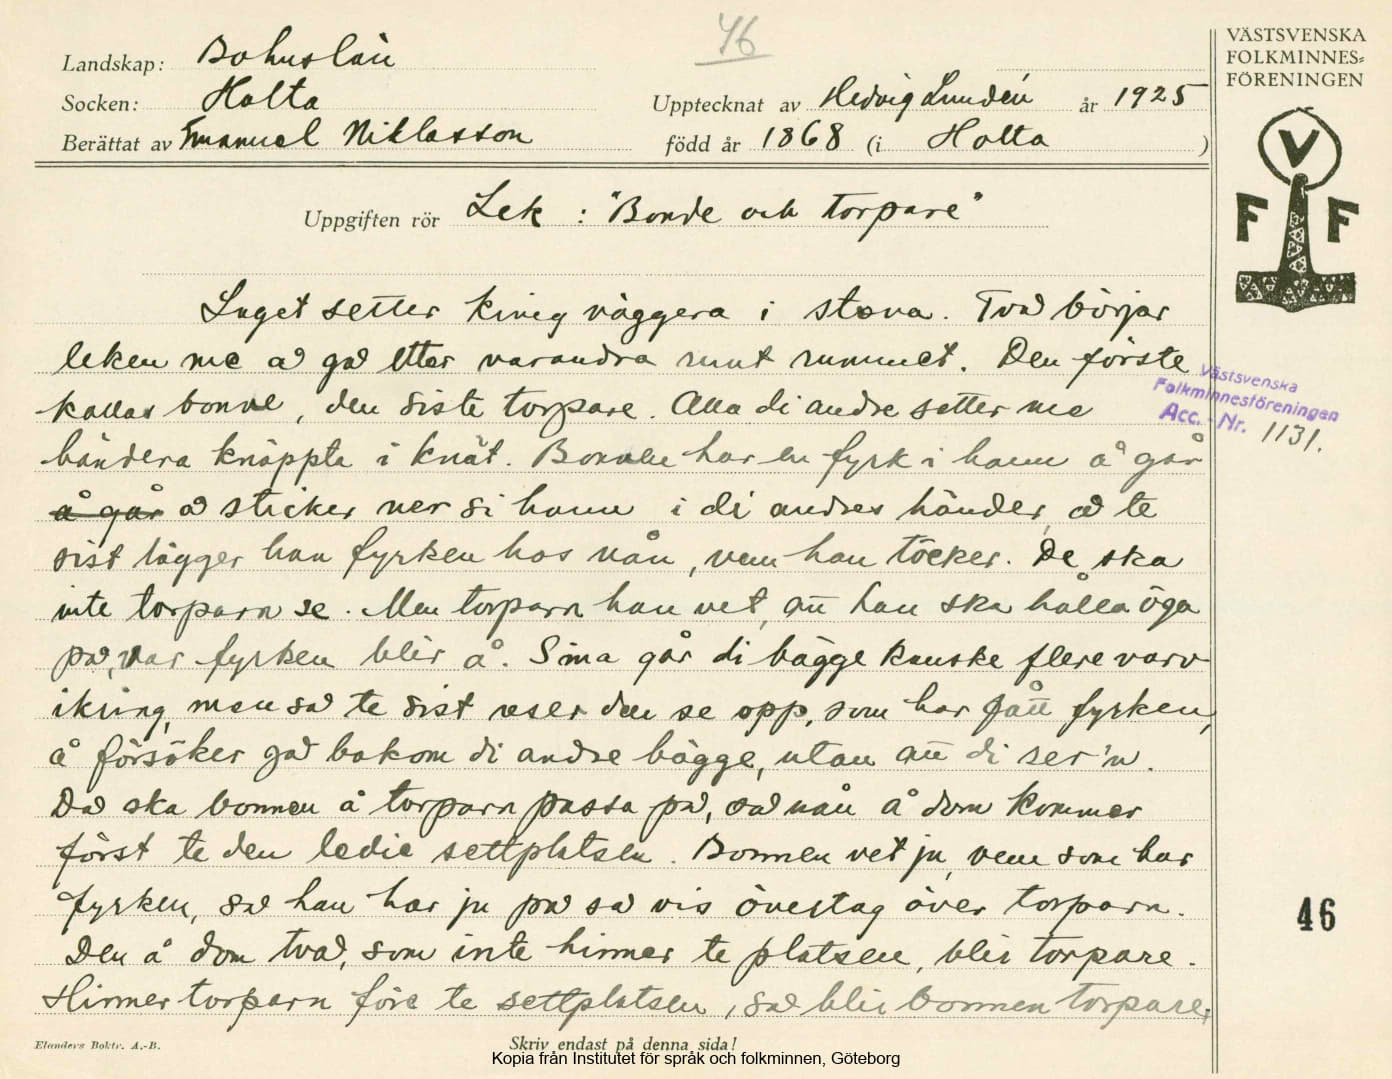 46
VÄSTSVENSKA
FOLKMINNES=
FÖRENINGEN
V
F F
Landskap: Bohuslän
Socken: Holta
Upptecknat av Hedvig Lundén år 1925
Berättat av Emanuel Niklasson
född år 1868 (i Holta )
Uppgiften rör Lek : "Bonde och torpare"
Laget setter kring väggera i stova. Två börjar
leken me å gå etter varandra runt rummet. Den förste
kallas bonne, den siste torpare. Alla di andre setter me
händera knäppta i knät. Bonnen har en fyrk i hann å går
å går å sticker ner si hann i di andres händer, å te
sist lägger han fyrken hos nån, vem han töcker. De ska
inte torparn se. Men torparn han vet, att han ska hålla öga
på, var fyrken blir å. Sina går di bägge kanske flere varv
ikring, men så te sist reser den se opp, som har fått fyrken,
å försöker gå bakom di andre bägge, utan att di ser'n.
Då ska bonnen å torparn passa på, så nån å dom kommer
först te den ledie settplatsen. Bonnen vet ju, vem som har
fyrken, så han har ju på så vis övertag över torparn.
Den å dom två, som inte hinner te platsen, blir torpare.
Hinner torparn före te settplatsen, så blir bonnen torpare,
Västsvenska
Folkminnesföreningen
Acc. - Nr. 1131.
46
Elanders Boktr. A.-B.
Skriv endast på denna sida!
Kopia från Institutet för språk och folkminnen, Göteborg